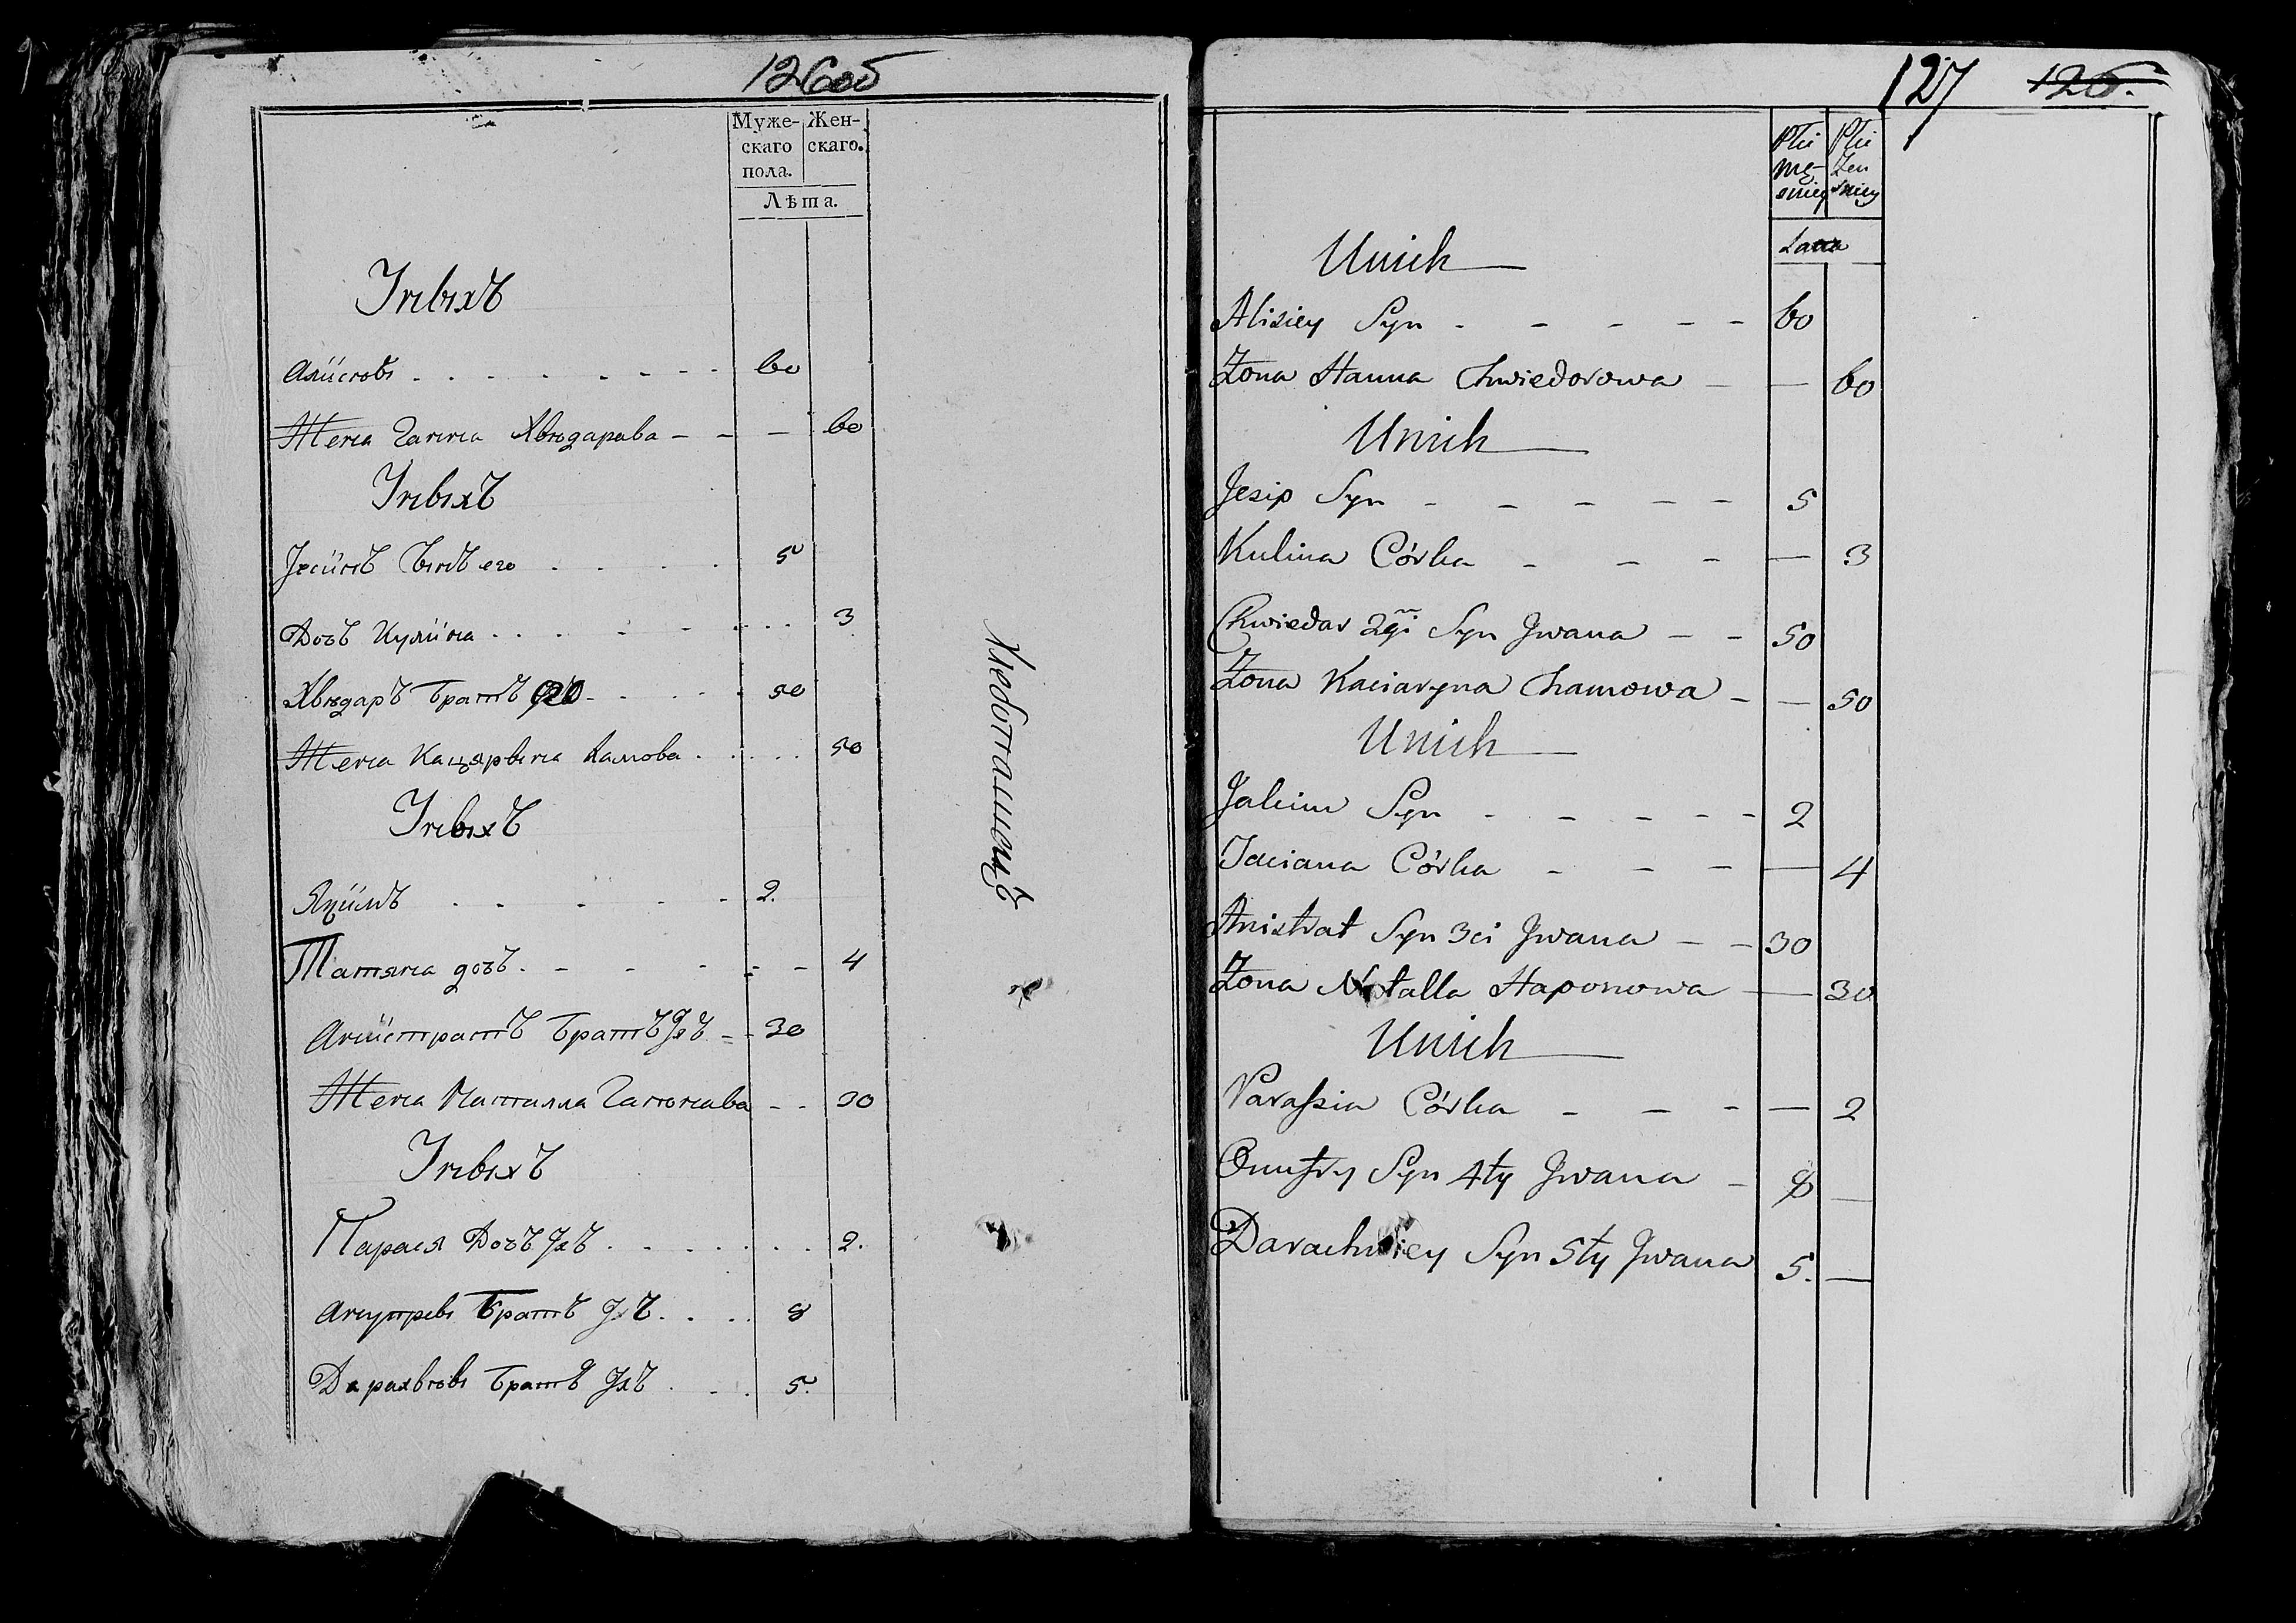 126об
Муже-скаго пола. Жен-скаго.
Лѣта.
Унвıхъ
Алiисѣвı 60
Жена Ганна Хвѣдарава 60
Унвıхъ
сынъ его 5
Дочъ Кулiина 3
Хвѣдаръ братъ 50
Жена Кацярвıна Хамова 50
Унвıхъ
Якiимъ 2.
Татяна дочъ 4
Анiистратъ братъ Jхъ 30
Жена Наталла Гапонава 30
Унвıхъ
Парася Дочъ Jхъ 2.
братъ Jхъ 8
Дарахвѣвı братъ Jхъ 5.
127 126.
Płci mę-skiey Płci żen skiey
Lata
U nich
Alisiey Syn 60
Żona Hanna Chwiedorowa 60
U nich
Jesip Syn 5
Kulina Córka 3
Chwiedar 2gi Syn Jwana 50
Żona Kaciaryna Chamowa 50
U nich
Jakim Syn 2
Taciana Córka 4
Anistrat Syn 3ci Jwana 30
Żona Natalla Haponowa 30
U nich
Parassia Córka 2
Syn 4ty Jwana 8
Darachwiey Syn 5ty Jwana 5.